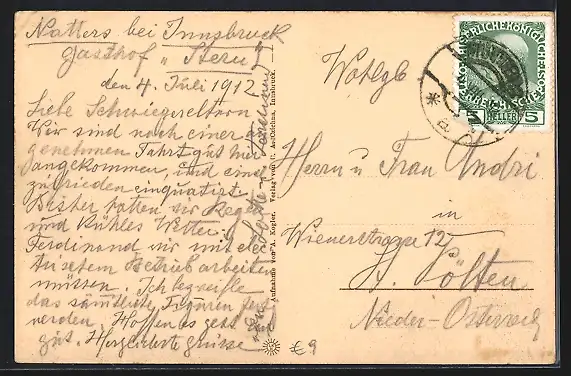 Natters bei Innsbruck
Gasthof „Stern"
den 4. Juli 1912
Liebe Schwiegereltern
Wir sind nach einer an
genehmen Fahrt gut hier
angekommen, und sind
zufrieden einquatirt.
Bisher hatten wir Regen
und Kühles Wetter.
Ferdinand wir mit
Betrieb arbeiten
müssen. Ich
das sämtliche Figuren
werden. Hoffen es geht
gut. Grüsse
Aufnahme von A. Kogler. Verlag von Innsbruck.
Wohlgb
Herrn u Frau Andri
in
Wienerstrasse 12
St. Pölten
Nieder-Österreich
5 HELLER 5
€ 9